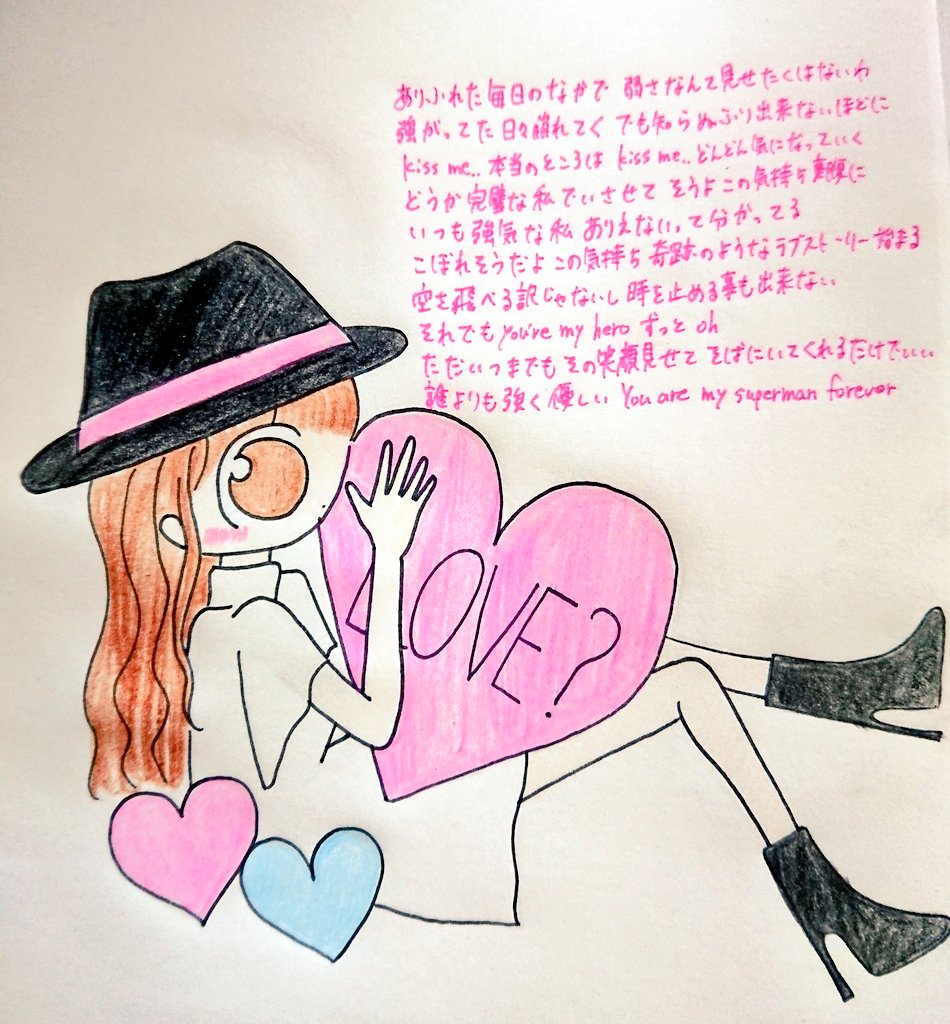 ありふれた毎日のなかで 弱さなんて見せたくはないわ
強がってた 日々崩れてく でも知らぬふり出来ないほどに
kiss me.. 本当のところは kiss me.. どんどん気になっていく
どうか完璧な私でいさせて そうよこの気持ち 裏腹に
いつも強気な私 ありえないって分かってる
こぼれそうだよ この気持ち 奇跡のようなラブストーリー始まる
空を飛べる訳じゃないし 時を止める事も出来ない
それでも you're my hero ずっと oh
ただいつまでも その笑顔見せて そばにいてくれるだけでいい
誰よりも強く優しい You are my superman forever
LOVE?